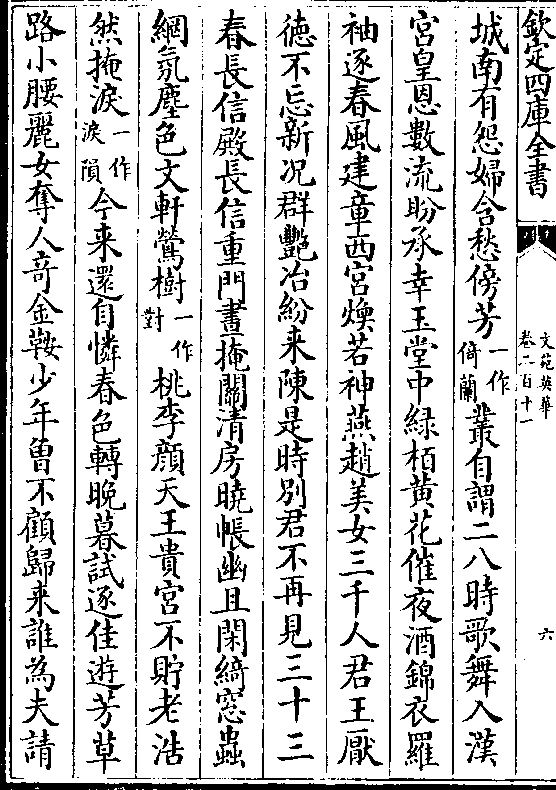 欽定四庫全書
文苑英華
卷二百十一
六
城南有怨婦含愁傍芳一作倚蘭叢自謂二八時歌舞入漢
宮皇恩數流盼承幸玉堂中綠栢黄花催夜酒錦衣羅
袖逐春風建章西宮煥若神燕趙美女三千人君王厭
徳不忘新况群艷冶紛來陳是時别君不再見三十三
春長信殿長信重門晝掩關清房曉帳幽且閑綺窓蟲
網氛塵色文軒鶯樹一作對桃李顔天王貴宮不貯老浩
然掩淚一作淚隕今来還自憐春色轉晚暮試逐佳遊芳草
路小腰麗女奪人竒金鞍少年曽不顧歸来誰為夫請